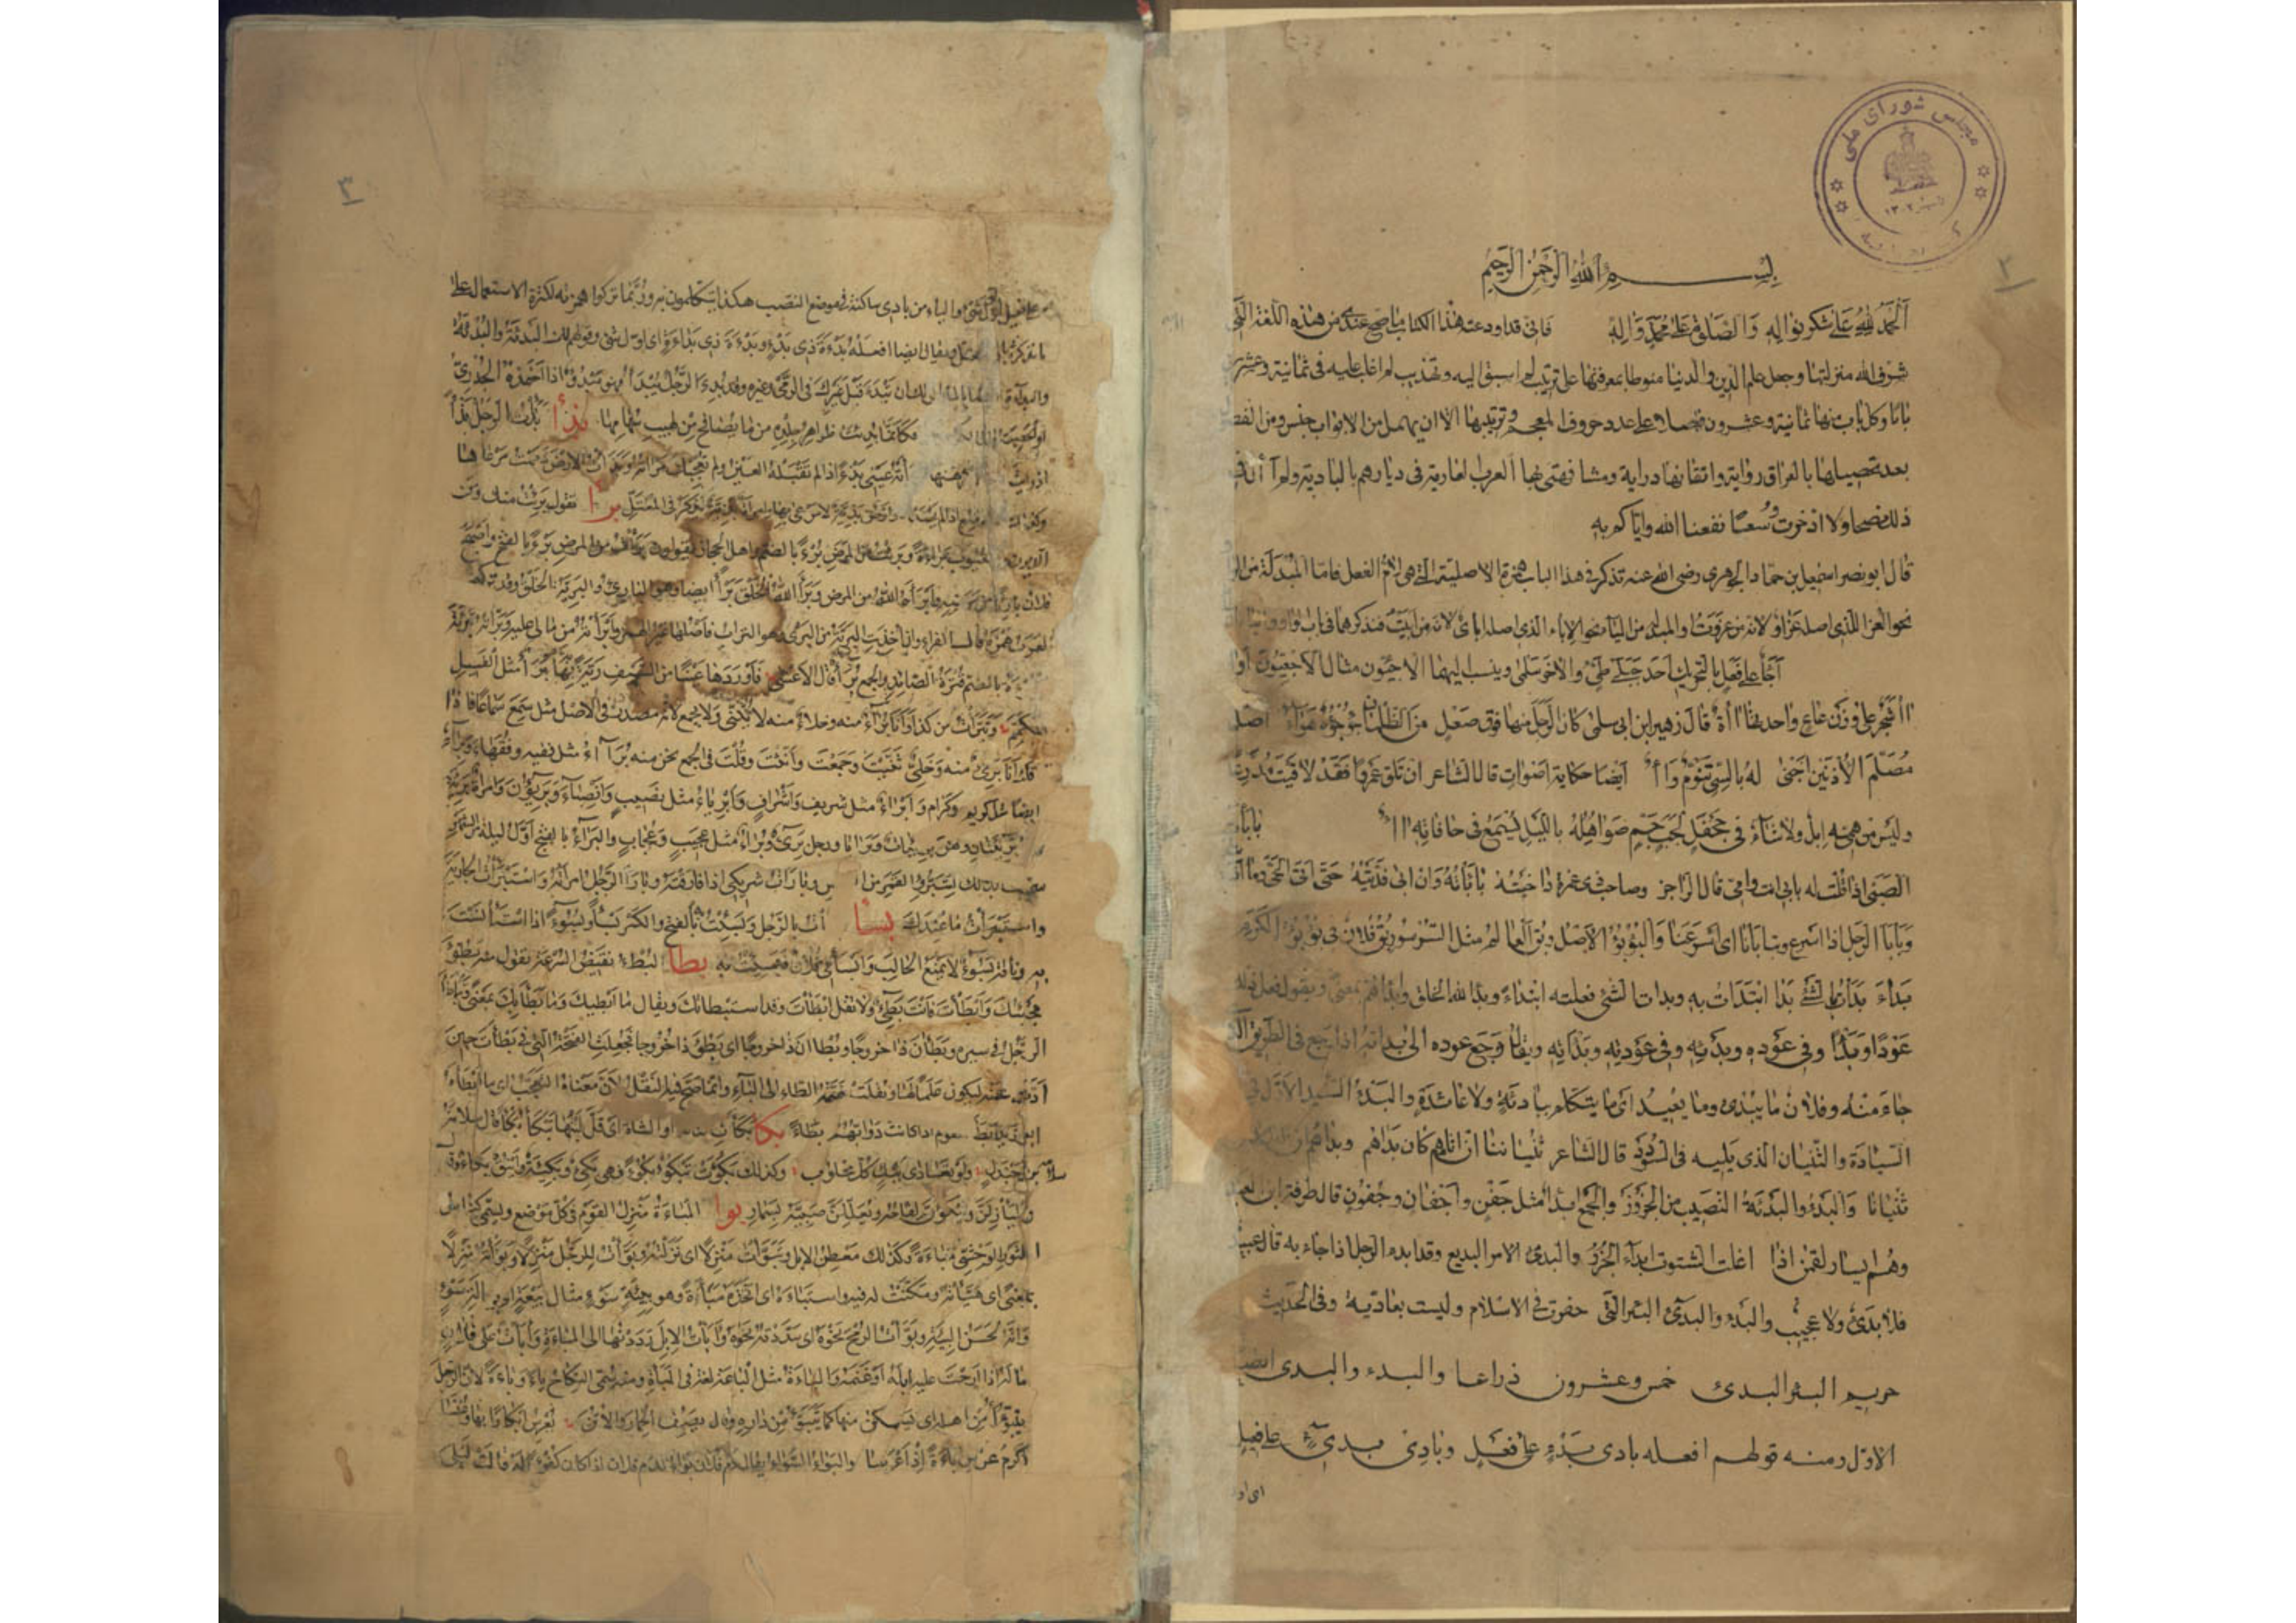 مجلس شورای ملی
١٣٠٢
٢
بسم الله الرحمن الرحيم
الحمد لله على شكر نواله والصلوة على محمد وآله فانى قد اودعت هذا الكتاب ما صح عندى من هذه اللغة التى
شرف الله منزلتها وجعل علم الدين والدنيا منوطا بمعرفتها على ترتيب لم اسبق اليه وتهذيب لم اغلب عليه فى ثمانية وعشرين
بابا وكل باب منها ثمانية وعشرون فصلا على عدد حروف المعجم وترتيبها الا ان يهمل من الابواب جنس ومن الفصول
بعد تحصيلها بالعراق رواية واتقانها دراية ومشافهتى بها العرب العاربة فى ديارهم بالبادية ولم آل فى
ذلك نصحا ولا ادخرت وسعا نفعنا الله واياكم به
قال ابو نصر اسمعيل بن حماد الجوهرى رضى الله عنه تذكر فى هذا الباب همزة الاصلية التى هى لام الفعل فاما المبدلة من الواو
نحو العزا الذى اصله عزاو لانه من عزوت والمبدلة من الياء نحو الاباء الذى اصله اباى لانه من ابيت فنذكرهما فى باب واو وياء
آجأ على فعل بالتحريك احد جبلى طيئ والاخر سلمى وينسب اليهما الاجئيون مثال الاجعيون
شجر على وزن عاع واحدتها قال زهير ابن ابى سلمى كان الرحل منها فوق صعل من الظلمان جؤجؤه هواء اصك
مصلم الاذنين اجنى له بالسى تنوم وآء ايضا حكاية اصوات قال الشاعر ان تلق عمرا فقد لاقيت مدرعا
وليس من همه ابل ولا شاء فى جحفل لجب جم صواهله بالليل يسمع فى حافاته بابأت
الصبى اذا قلت له بابى انت وامى قال الراجز وصاحب ذى غمرة داجيته بابأته وان ابى فديته حتى اتى الحى وما
وبابا الرجل اذا اسرع وتبابأنا اى اسرعنا والبؤبؤ الاصل ويقال العالم مثل السرسور يقال فلان فى بؤبؤ الكرم
بداء بدأت بالشئ بدا ابتدات به وبدات الشئ فعلته ابتداء وبدا الله الخلق وابداهم بمعنى ويقول فعل ذلك
عودا وبدا وفى عوده وبدئه وفى عودته وبدأته ويقال رجع عوده الى بدائه اذا رجع فى الطريق الذى
جاء منه وفلان ما يبدئ وما يعيد اى ما يتكلم ببادئة ولا عائدة والبدء السيد الاول فى
السيادة والثنيان الذى يليه فى السودد قال الشاعر ثنياننا ان اتاهم كان بداهم وبداهم ان
ثنيانا والبدء والبدئة النصيب من الجزور والجمع ابدا مثل جفن واجفان وجفون قال طرفة ابن العبد
وهم ايسار لقمن اذا اغلت الشتوت ابداء الجزر والبدئ الامر البديع وقد ابدء الرجل اذا جاء به قال عبيد
فلا بدئ ولا عجيب والبدء والبدئ البئر التى حفرت فى الاسلام وليست بعادية وفى الحديث
حريم البئر البدئ خمس وعشرون ذراعا والبدء والبدى ايضا
الاول ومنه قولهم افعله بادى بدء على فعل وبادى بدئ على فعيل
٣
على فعيل اى اول شئ والياء من بادى ساكنة فى موضع النصب هكذا يتكلمون به وربما تركوا همزته لكثرة الاستعمال على
ما نذكره ويقال ايضا افعله بدءة ذى بدء وبدءة ذى بداءة اى اول شئ وقولهم لك البدئة والبدأة
ان تبدء قبل غيرك فى الرمى وغيره وقد بدئ الرجل يبدأ فهو مبدو اذا اخذه الجدرى
او الحصبة فكانما بدئت ظواهر جلده مما يصافح من لهيب سهامها بذأ بذأت الرجل بذأ
بذأته عينى بذءا اذا لم تقبله العين ولم تعجبك مرآته وبذأت الارض ذممت مرعاها
برأ تقول برئت منك ومن
الديون والعيوب براءة وبرئت من المرض برءا بالضم واهل الحجاز يقولون برأت من المرض برءا بالفتح واصبح
فلان بارئا من مرضه وابرأه الله من المرض وبرأ الله الخلق برأ ايضا وهو البارئ والبرية الخلق وقد تركت
العرب همزه قال الفراء وان اخذت البرية من البرى وهو التراب فاصلها غير الهمز وابرأته مما لى عليه وبرأته تبرئة
بالضم قترة الصائد والجمع برأ قال الاعشى فاوردها عينا من السيف رية بها برأ مثل الفسيل
المكمم وتبرأت من كذا وانا براء منه وخلاء منه لا يثنى ولا يجمع لانه مصدر فى الاصل مثل سمع سماعا فاذا
قلت انا برئ منه وخلى ثنيت وجمعت وانثت وقلت فى الجمع نحن منه برآء مثل فقيه وفقهاء وبراء
ايضا مثل كريم وكرام وابراء مثل شريف واشراف وابرياء مثل نصيب وانصباء وبريؤن وامراة بريئة
بريئتان وهن بريئات وبرايا ورجل برئ وبراء مثل عجيب وعجاب والبراء بالفتح اول ليلة من الشهر
سميت بذلك لتبرؤ القمر من الشمس وبارات شريكى اذا فارقته وبارأ الرجل امرأته واستبرأت الجارية
واستبرأت ما عندك بسأ بسأت بالرجل وبسئت بالفتح والكسر بسأ وبسوءا اذا استأنست
به وناقة بسوء لا تمنع الحالب وابسأنى فلان فبسئت به بطأ البطء نقيض السرعة تقول منه بطؤ
مجيئك وابطأت فانت بطئ ولا تقل ابطات وقد استبطأتك ويقال ما ابطأ بك وما بطأ بك بمعنى وتباطأ
الرجل فى سيره وبطآن ذا خروجا وبطآن ذا خروجا اى بطؤ ذا خروجا فجعلت الفتحة التى فى بطؤ على نون
عنه ليكون علما لها ونقلت ضمة الطاء الى الباء وانما صح فيه النقل لان معناه التعجب اى ما ابطأه
ابو زيد ابطأ القوم اذا كانت دوابهم بطاء بكأ بكأت الناقة او الشاة اى قل لبنها تبكأ بكأ قال سلامة
بن جندل ولو تعادى ببكء كل محلوب وكذلك بكؤت تبكؤ بكوءا فهى بكئ وبكيئة واينق بكاء
وليأزلن وتبكؤن لقاحه ويعللن صبيه بسمار بوأ المباءة منزل القوم فى كل موضع ويسمى كناس
الثور الوحشى مباءة وكذلك معطن الابل وتبوأت منزلا اى نزلته وبوأت للرجل منزلا وبوأته منزلا
بمعنى اى هيأته ومكنت له فيه واستباءه اى اتخذه مباءة وهو ببيئة سوء مثال بيعة اى بحالة سوء
وانه لحسن البيئة وبوأت الرمح نحوه اى سددته نحوه وابأت الابل رددتها الى المباءة وابأت على فلان
ماله اذا ارحت عليه ابله او غنمه والباءة مثل الباعة لغة فى المباءة ومنه سمى النكاح باء وباءة لان الرجل
يتبوأ من اهله اى يستمكن منها كما يتبوأ من داره وقال يصف الحمار والاتن يعرس ابكارا بها وعنسا
اكرم عرس باءة اذ اعرسا والبواء السواء يقال دم فلان بواء لدم فلان اذا كان كفوا له قالت ليلى